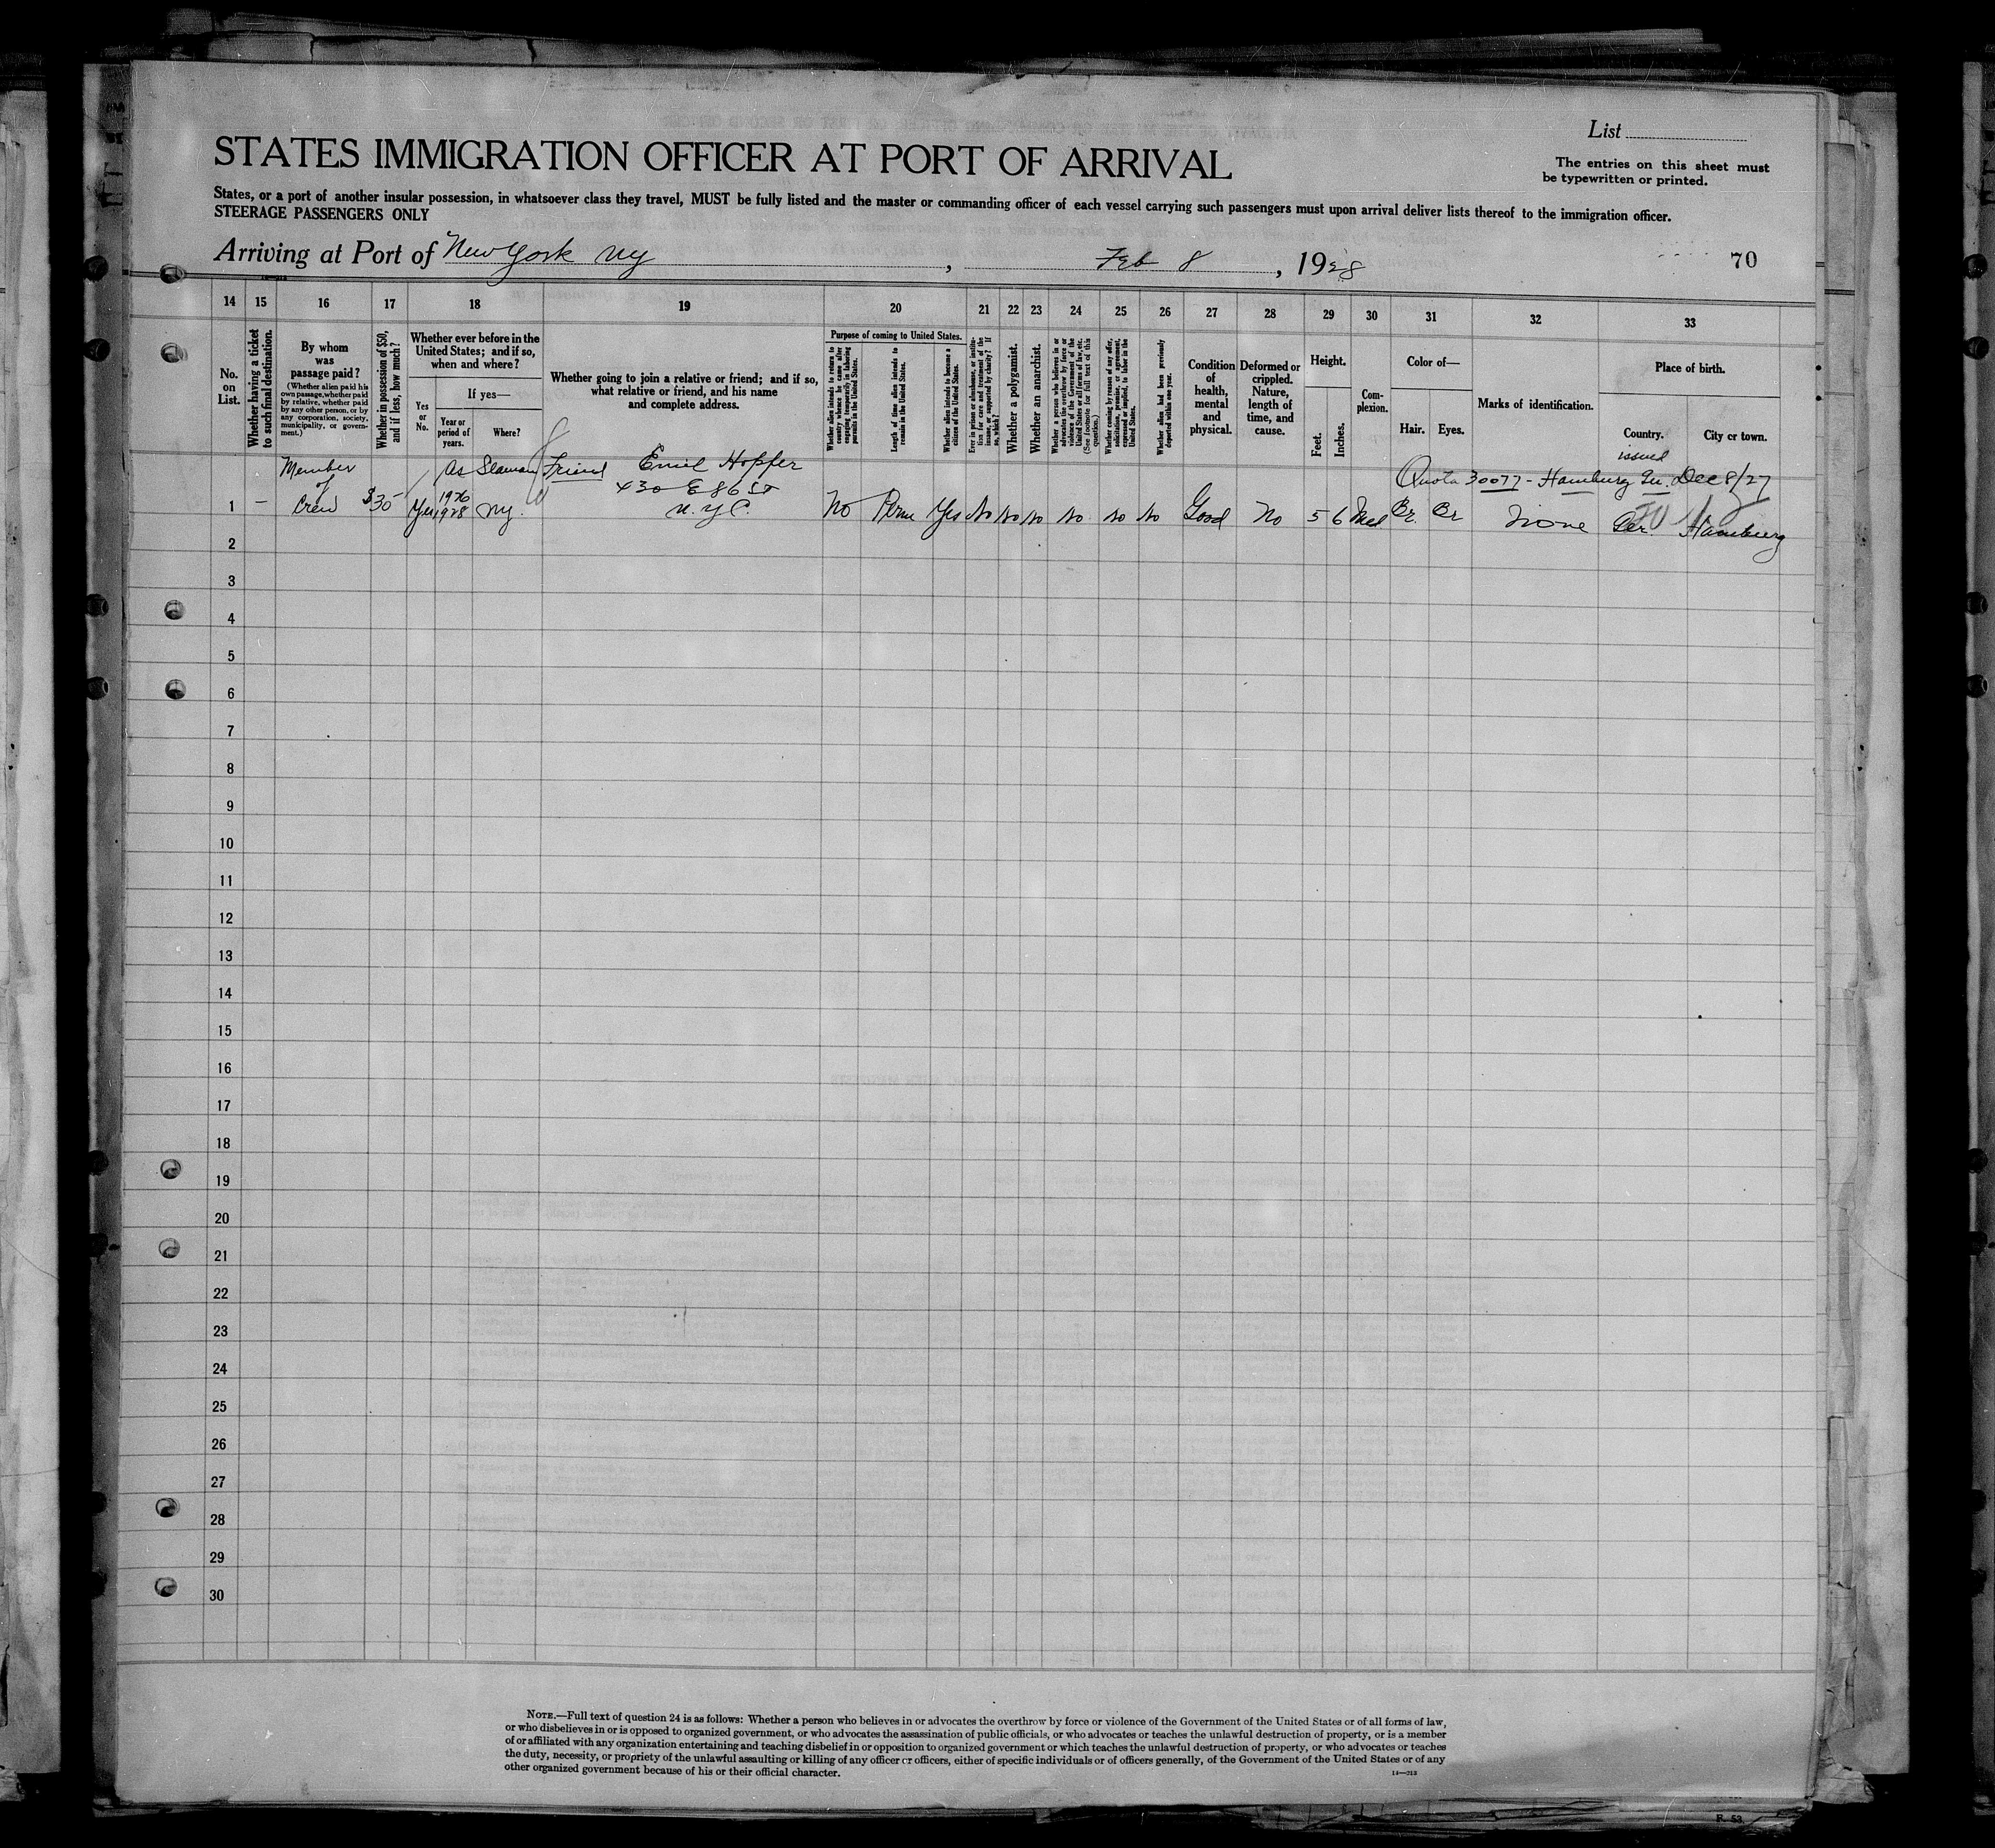 List
STATES IMMIGRATION OFFICER AT PORT OF ARRIVAL
The entries on this sheet must
be typewritten or printed.
States, or a port of another insular possession, in whatsoever class they travel, MUST be fully listed and the master or commanding officer of each vessel carrying such passengers must upon arrival deliver lists thereof to the immigration officer.
STEERAGE PASSENGERS ONLY
Arriving at Port of New York Ny, Feb 8, 1928
70
14 15 16 17 18 19 20 21 22 23 24 25 26 27 28 29 30 31 32 33
No.
on
List.
Whether having a ticket
to such final destination.
By whom
was
passage paid?
(Whether alien paid his
own passage, whether paid
by relative, whether paid
by any other person, or by
any corporation, society,
municipality, or govern-
ment.)
Whether in possession of $50,
and if less, how much?
Whether ever before in the
United States; and if so,
when and where?
Yes
or
No.
If yes—
Year or
period of
years.
Where?
Whether going to join a relative or friend; and if so,
what relative or friend, and his name
and complete address.
Purpose of coming to United States.
Whether alien intends to return to
country whence he came after
engaging temporarily in laboring
pursuits in the United States.
Length of time alien intends to
remain in the United States.
Whether alien intends to become a
citizen of the United States.
Ever in prison or almshouse, or institu-
tion for care and treatment of the
insane, or supported by charity? If
so, which?
Whether a polygamist.
Whether an anarchist.
Whether a person who believes in or
advocates the overthrow by force or
violence of the Government of the
United States or all forms of law, etc.
(See footnote for full text of this
question.)
Whether coming by reason of any offer,
solicitation, promise, or agreement,
expressed or implied, to labor in the
United States.
Whether alien had been previously
deported within one year.
Condition
of
health,
mental
and
physical.
Deformed or
crippled.
Nature,
length of
time, and
cause.
Height.
Feet.
Inches.
Com-
plexion.
Color of—
Hair.
Eyes.
Marks of identification.
Place of birth.
Country.
City or town.
issued
Member As Seaman Friend Emil Hopfer Quota 30077 - Hamburg Gu. Dec 8/27
of 1926 430 E 86 ST
1 – Crew $30 Yes 1928 Ny. N.Y.C. No Perm Yes No No No No No No Good No 5 6 Med Br. Br None Ger. Hamburg
2
3
4
5
6
7
8
9
10
11
12
13
14
15
16
17
18
19
20
21
22
23
24
25
26
27
28
29
30
NOTE.—Full text of question 24 is as follows: Whether a person who believes in or advocates the overthrow by force or violence of the Government of the United States or of all forms of law,
or who disbelieves in or is opposed to organized government, or who advocates the assassination of public officials, or who advocates or teaches the unlawful destruction of property, or is a member
of or affiliated with any organization entertaining and teaching disbelief in or opposition to organized government or which teaches the unlawful destruction of property, or who advocates or teaches
the duty, necessity, or propriety of the unlawful assaulting or killing of any officer or officers, either of specific individuals or of officers generally, of the Government of the United States or of any
other organized government because of his or their official character.
14—713
R. 53